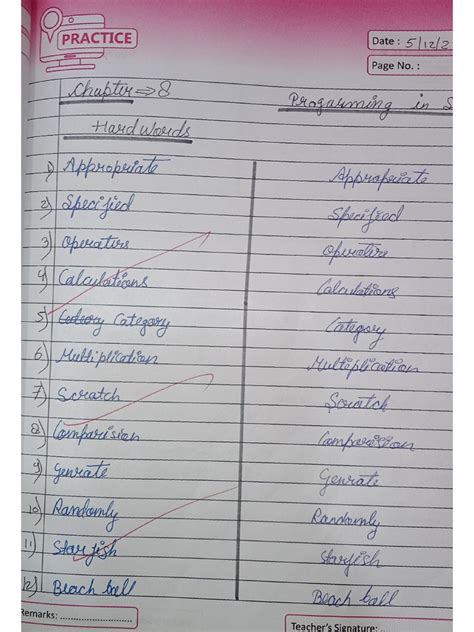 PRACTICE
Date : 5/12/2
Page No. :
Chapter ⇒ 8
Progarming in S
Hard Words
1) Appropriate Appropriate
2) Specified Specified
3) Operatirs Operatire
4) Calculations Calculations
5) Category Category
6) Multiplication Multiplication
7) Scratch Scratch
8) Comparision Comparision
9) Genrate Genrate
10) Randomly Randomly
11) Starfish Starfish
12) Beach ball Beach ball
Remarks: ................................
Teacher's Signature: ..